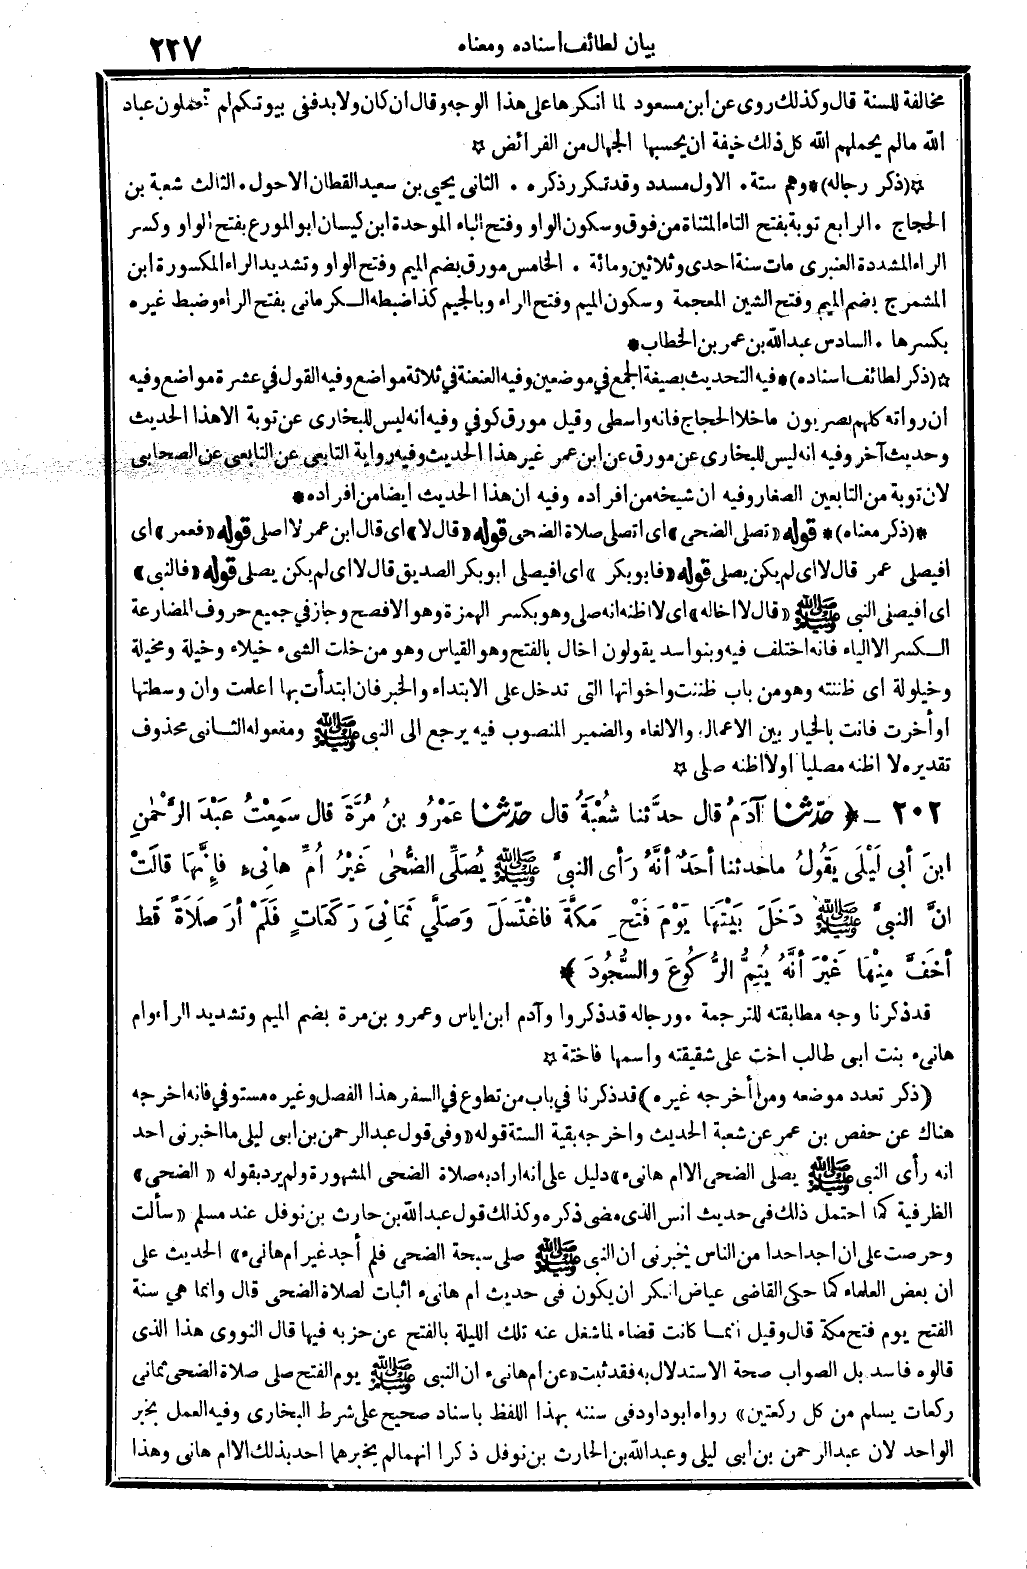 بيان لطائف اسناده ومعناه
٢٢٧
مخالفة للسنة قال وكذلك روى عن ابن مسعود لما انكرها على هذا الوجه وقال ان كان ولا بد ففى بيوتكم لم تحملون عباد
الله مالم يحملهم الله كل ذلك خيفة ان يحسبها الجهال من الفرائض ☆
☆(ذكر رجاله)* وهم ستة • الاول مسدد وقد تكرر ذكره • • الثانى يحيى بن سعيد القطان الاحول • الثالث شعبة بن
الحجاج • الرابع توبة بفتح التاء المثناة من فوق وسكون الواو وفتح الباء الموحدة ابن كيسان ابو المورع بفتح الواو وكسر
الراء المشددة العنبرى مات سنة احدى وثلاثين ومائة • الخامس مورق بضم الميم وفتح الواو وتشديد الراء المكسورة ابن
المشمرج بضم الميم وفتح الشين المعجمة وسكون الميم وفتح الراء وبالجيم كذا ضبطه الكرمانى بفتح الراء وضبط غيره
بكسرها • السادس عبد الله بن عمر بن الخطاب*
☆(ذكر لطائف اسناده)* فيه التحديث بصيغة الجمع في موضعين وفيه العنعنة في ثلاثة مواضع وفيه القول في عشرة مواضع وفيه
ان رواته كلهم بصريون ما خلا الحجاج فانه واسطى وقيل مورق كوفي وفيه انه ليس للبخارى عن توبة الا هذا الحديث
وحديث آخر وفيه انه ليس للبخارى عن مورق عن ابن عمر غير هذا الحديث وفيه رواية التابعى عن التابعى عن الصحابى
لان توبة من التابعين الصغار وفيه ان شيخه من افراده وفيه ان هذا الحديث ايضا من افراده*
*(ذكر معناه)* قوله «تصلى الضحى» اى اتصلى صلاة الضحى قوله «قال لا» اى قال ابن عمر لا اصلى قوله «فعمر» اى
افيصلى عمر قال لا اى لم يكن يصلى قوله «فابو بكر» اى افيصلى ابو بكر الصديق قال لا اى لم يكن يصلى قوله «فالنبى»
اى افيصلى النبى ﷺ «قال لا اخاله» اى لا اظنه انه صلى وهو بكسر الهمزة وهو الافصح وجاز في جميع حروف المضارعة
الكسر الا الياء فانه اختلف فيه وبنو اسد يقولون اخال بالفتح وهو القياس وهو من خلت الشىء خيلاء وخيلة ومخيلة
وخيلولة اى ظننته وهو من باب ظننت واخواتها التى تدخل على الابتداء والخبر فان ابتدأت بها اعلمت وان وسطتها
او أخرت فانت بالخيار بين الاعمال والالغاء والضمير المنصوب فيه يرجع الى النبى ﷺ ومفعوله الثانى محذوف
تقديره لا اظنه مصليا او لا اظنه صلى ☆
٢٠٢ – ﴿ حدّثنا آدَمُ قال حدَّثنا شُعْبَةُ قال حدّثنا عَمْرُو بنُ مُرَّةَ قال سَمِعْتُ عَبْدَ الرَّحْمٰنِ
ابنَ أبى لَيْلَى يَقُولُ ما حدثنا أحَدٌ أنَّهُ رَأى النبىَّ ﷺ يُصَلِّى الضُّحٰى غَيْرُ أُمِّ هانِىءٍ فإِنَّهَا قالَتْ
انَّ النبىَّ ﷺ دَخَلَ بَيْتَهَا يَوْمَ فَتْحِ مَكَّةَ فاغْتَسَلَ وَصَلَّي ثَمَانِىَ رَكَعَاتٍ فَلَمْ أرَ صَلَاةً قَط
أخَفَّ مِنْهَا غَيْرَ أنَّهُ يُتِمُّ الرُّكُوعَ والسُّجُودَ ﴾
قد ذكرنا وجه مطابقته للترجمة • ورجاله قد ذكروا وآدم ابن اياس وعمرو بن مرة بضم الميم وتشديد الراء وام
هانىء بنت ابى طالب اخت على شقيقته واسمها فاختة ☆
(ذكر تعدد موضعه ومن أخرجه غيره) قد ذكرنا في باب من تطوع في السفر هذا الفصل وغيره مستوفي فانه اخرجه
هناك عن حفص بن عمر عن شعبة الحديث واخرجه بقية الستة قوله «وفى قول عبد الرحمن بن ابى ليلى ما اخبرنى احد
انه رأى النبى ﷺ يصلى الضحى الا ام هانىء» دليل على انه اراد به صلاة الضحى المشهورة ولم يرد بقوله «الضحى»
الظرفية كما احتمل ذلك فى حديث انس الذى مضى ذكره وكذلك قول عبد الله بن حارث بن نوفل عند مسلم «سألت
وحرصت على ان اجد احدا من الناس يخبرنى ان النبى ﷺ صلى سبحة الضحى فلم أجد غير ام هانىء» الحديث على
ان بعض العلماء كما حكى القاضى عياض انكر ان يكون فى حديث ام هانىء اثبات لصلاة الضحى قال وانما هي سنة
الفتح يوم فتح مكة قال وقيل انما كانت قضاء لما شغل عنه تلك الليلة بالفتح عن حزبه فيها قال النووى هذا الذى
قالوه فاسد بل الصواب صحة الاستدلال به فقد ثبت «عن ام هانىء ان النبى ﷺ يوم الفتح صلى صلاة الضحى ثمانى
ركعات يسلم من كل ركعتين» رواه ابو داود فى سننه بهذا اللفظ باسناد صحيح على شرط البخارى وفيه العمل بخبر
الواحد لان عبد الرحمن بن ابى ليلى وعبد الله بن الحارث بن نوفل ذكرا انهما لم يخبرهما احد بذلك الا ام هانى وهذا